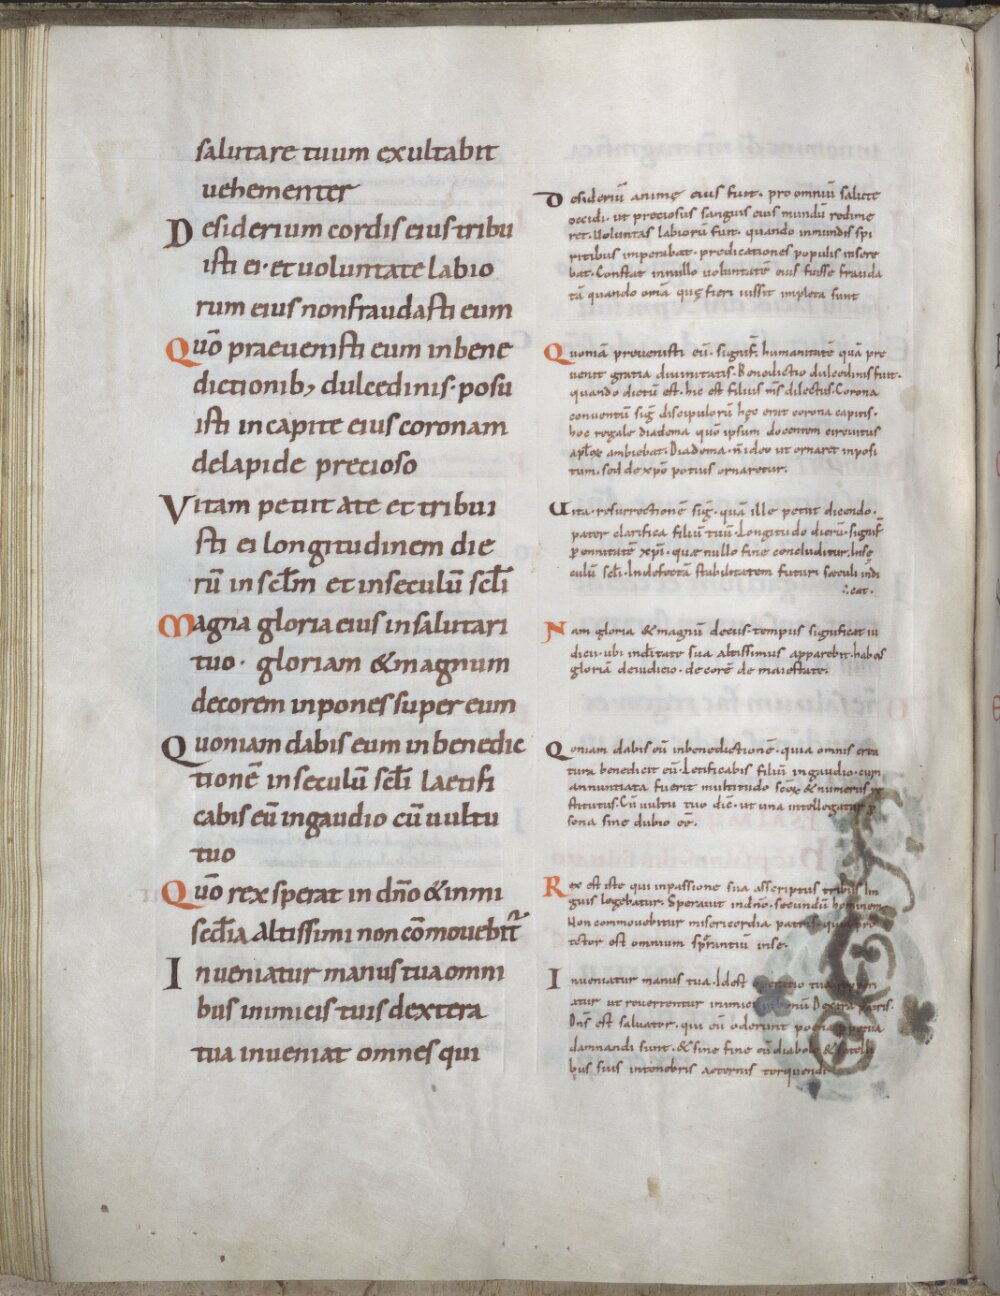 salutare tuum exultabit
uehementer
Desiderium cordis eius tribu
isti ei · et uoluntate labio
rum eius nonfraudasti eum
Quō praeuenisti eum inbene
dictionib; dulcedinis · posu
isti incapite eius coronam
delapide precioso
Vitam petiit ate et tribui
sti ei longitudinem die
rū in sclm̄ et inseculū scl̄i
Magna gloria eius insalutari
tuo · gloriam &magnum
decorem inpones super eum
Quoniam dabis eum inbenedic
tionē inseculū scl̄i laetifi
cabis eū ingaudio cū uultu
tuo
Quō rex sperat in dn̄o &inmi
sedia altissimi non cōmouebit᷑
Inueniatur manus tua omni
bus inimicis tuis dextera
tua inueniat omnes qui
Desideriū animę eius fuit · pro omniū salute
occidi · ut preciosus sanguis eius mundū redime
ret · Uoluntas labiorū fuit · quando inmundis spi
ritibus imperabat · predicationes populis insere
bat · Constat innullo uoluntatē eius fuisse frauda
tā quando om̄a quę fieri iussit impleta sunt
Quoniā preuenisti eū · signif̄ humanitatē quā pre
uenit gratia diuinitatis · Benedictio dulcedinis fuit ·
quando dictū est · hic est filius m̄s dilectus · Corona
conuentū siḡ discipulorū hęc erit corona capitis ·
hoc regale diadema quō ipsum docentem circuitus
apl̄ox ambiebat · Diadema · n̄ ideo ut ornaret inposi
tum · sed de xp̄o potius ornaretur ·
Uita · resurrectionē siḡ · quā ille petiit dicendo ·
pater clarifica filiū tuū · Longitudo dierū · signif̄
ꝑennitatē xp̄i · quae nullo fine concluditur · Inse
culū scl̄i · Indefectā stabilitatem futuri saeculi indi
cat ·
Nam gloria &magnū decus · tempus significat iu
dicii · ubi inclitate sua altissimus apparebit · habes
gloriā deiudicio · decorē de maiestate ·
Qoniam dabis eū inbenedictionē · quia omnis crea
tura benedicit eū · Letificabis filiū ingaudio · cum
annuntiata fuerit multitudo scōx &numerus
stitutus · Cū uultu tuo dic̄ · ut una intellegatur ꝑ
sona sine dubio eē ·
Rex est iste qui inpassione sua asscriptus tribus lin
guis legebatur · Sperauit indn̄o · secundū hominem
Non commouebitur misericordia patris · quia pro
tector est omnium sperantiū inse ·
Inueniatur manus tua · Idest operatio tua
atur ut reuerentur inimici Dextra patris ·
Dn̄s est saluator · qui eū oderunt poena
damnandi sunt · &sine fine cū diabolo &
bus suis intenebris aeternis torquendi